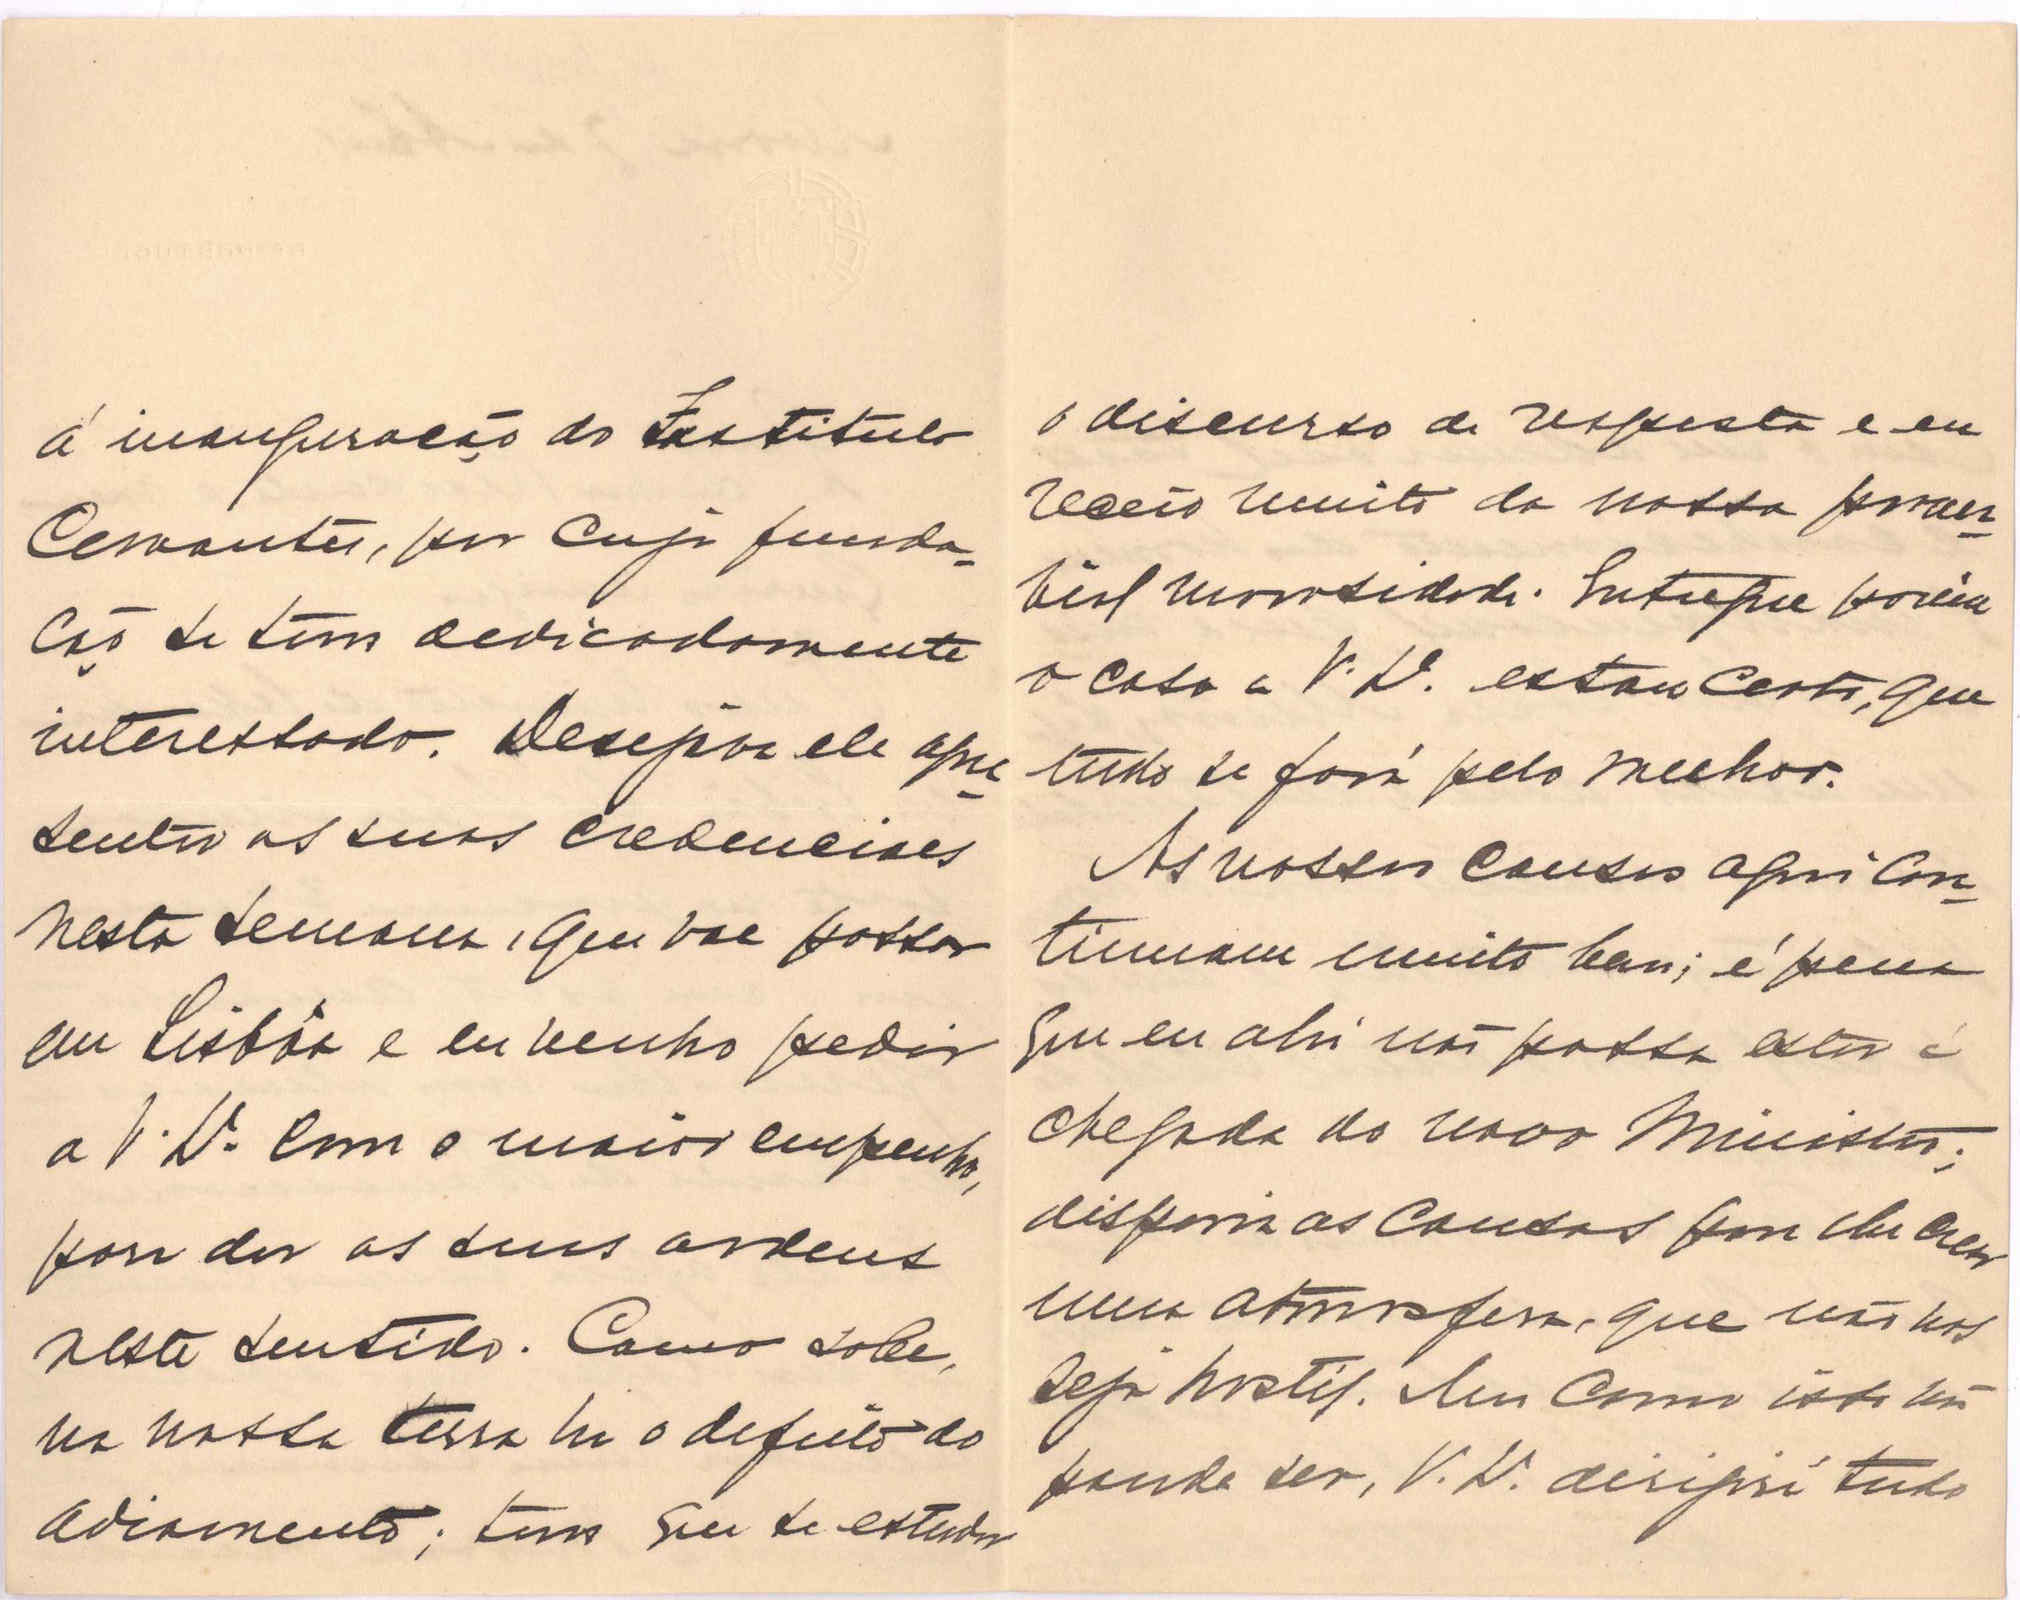 á inauguração do Instituto
Cervantes, por cuja funda-
ção se tem dedicadamente
interessado. Deseja ele apre-
sentar as suas credenciaes
nesta semana, que vae passar
em Lisbôa e eu venho pedir
a V. Exª. com o maior empenho,
para dar as suas ordens
neste sentido. Como sabe,
na nossa terra ha o defeito do
adiamento; tem que se estudar
o discurso de resposta e eu
receio muito da nossa prover-
bial morosidade. Entregue porém
o caso a V. Exª. estou certo, que
tudo se fará pelo melhor.
As nossas cousas aqui con-
tinuam muito bem; é pena
que eu ahi não possa estar á
chegada do novo Ministro;
disporia as cousas para lhe crear
uma atmosfera, que não nos
seja hostil. Mas como isto não
poude ser, V. Exª. dirigirá tudo